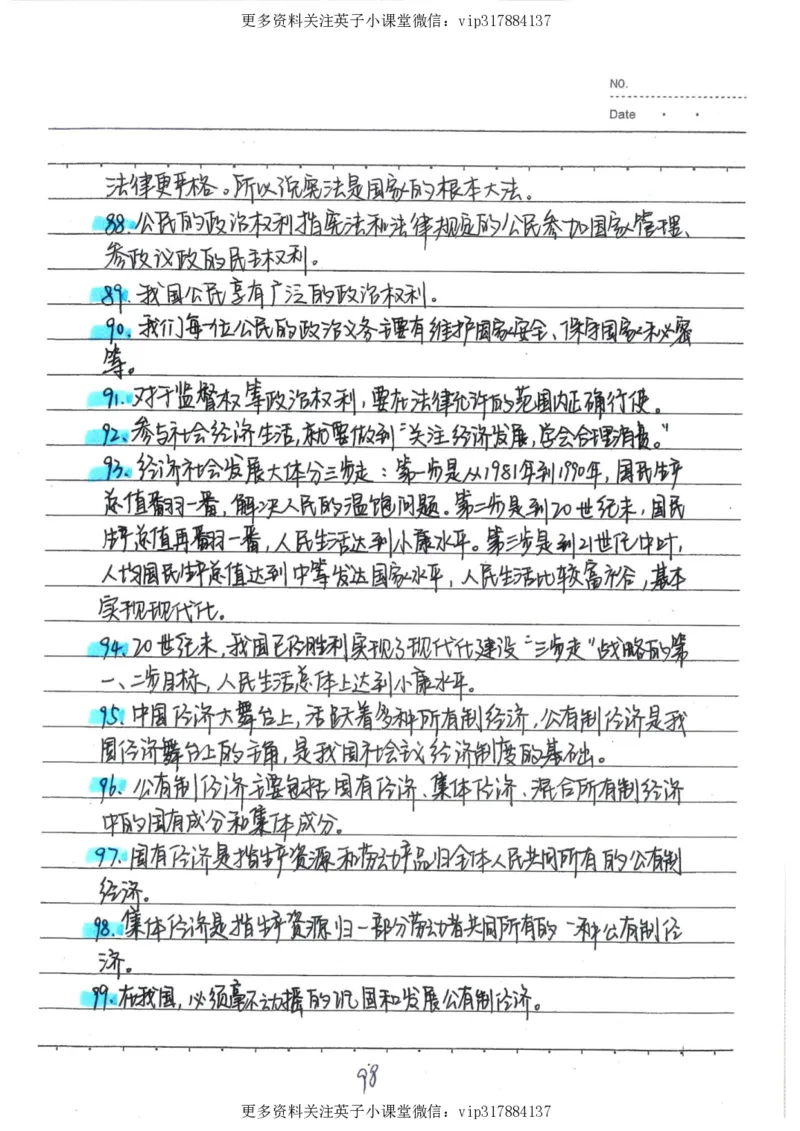 更多资料关注英子小课堂微信：vip317884137
NO.
Date
法律更严格。所以说宪法是国家的根本大法。
88.公民的政治权利指宪法和法律规定的公民参加国家管理、
参政议政的民主权利。
89.我国公民享有广泛的政治权利。
90.我们每一位公民的政治义务主要有维护国家安全、保守国家秘密
等。
91.对于监督权等政治权利，要在法律允许的范围内正确行使。
92.参与社会经济生活，就要做到“关注经济发展，学会合理消费。”
93.经济社会发展大体分三步走：第一步是从1981年到1990年，国民生产
总值翻一番，解决人民的温饱问题。第二步是到20世纪末，国民
生产总值再翻一番，人民生活达到小康水平。第三步是到21世纪中叶，
人均国民生产总值达到中等发达国家水平，人民生活比较富裕，基本
实现现代化。
94.20世纪末，我国已经胜利实现了现代化建设“三步走”战略的第
一、二步目标，人民生活总体上达到小康水平。
95.中国经济大舞台上，活跃着多种所有制经济，公有制经济是我
国经济舞台上的主角，是我国社会主义经济制度的基础。
96.公有制经济主要包括国有经济、集体经济、混合所有制经济
中的国有成分和集体成分。
97.国有经济是指生产资源和劳动产品归全体人民共同所有的公有制
经济。
98.集体经济是指生产资源归一部分劳动者共同所有的一种公有制经
济。
99.在我国，必须毫不动摇的巩固和发展公有制经济。
98
更多资料关注英子小课堂微信：vip317884137